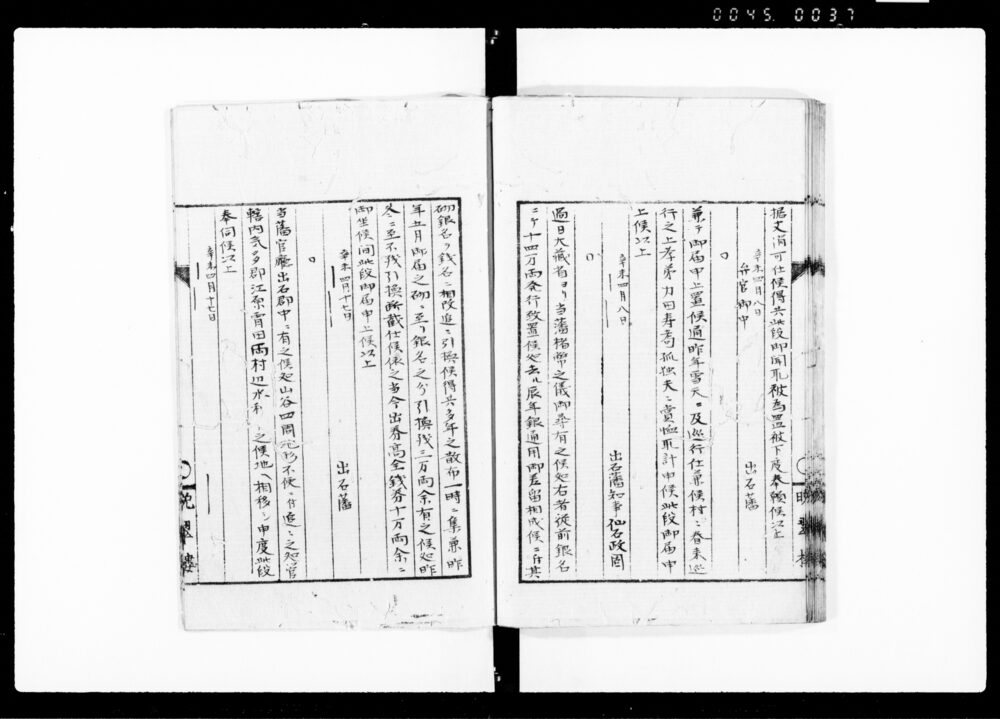 0045. 0037
据文消可仕候得共此段御聞取被為置被下度奉願候以上
辛未四月八日 出石藩
弁官御中
兼テ御届申上置候通昨年雪天ニ及巡行仕兼候村々春来巡
行之上孝弟力田寿考孤独夫々賞恤取計申候此段御届申
上候以上
辛未四月八日 出石藩知事仙石政固
過日大蔵省ヨリ当藩楮幣之儀御尋有之候処右者従前銀名
ニテ十四万両発行致置候処去ル辰年銀通用御差留相成候ニ付其
砌銀名ヲ銭名ニ相改追々引換候得共多年之散布一時ニ集兼昨
年五月御届之砌ニ至リ銀名之分引換残三万両余有之候処昨
冬ニ至不残引換断裁仕候依之当今出券高全銭券十万両余ニ
御坐候間此段御届申上候以上
辛未四月十七日 出石藩
当藩官庁出石郡中ニ有之候処山谷四周 不便ニ付追々之処管
轄内気多郡江原宵田両村辺水利 之候地ヘ相移シ申度此段
奉伺候以上
辛未四月十七日
晩翠楼